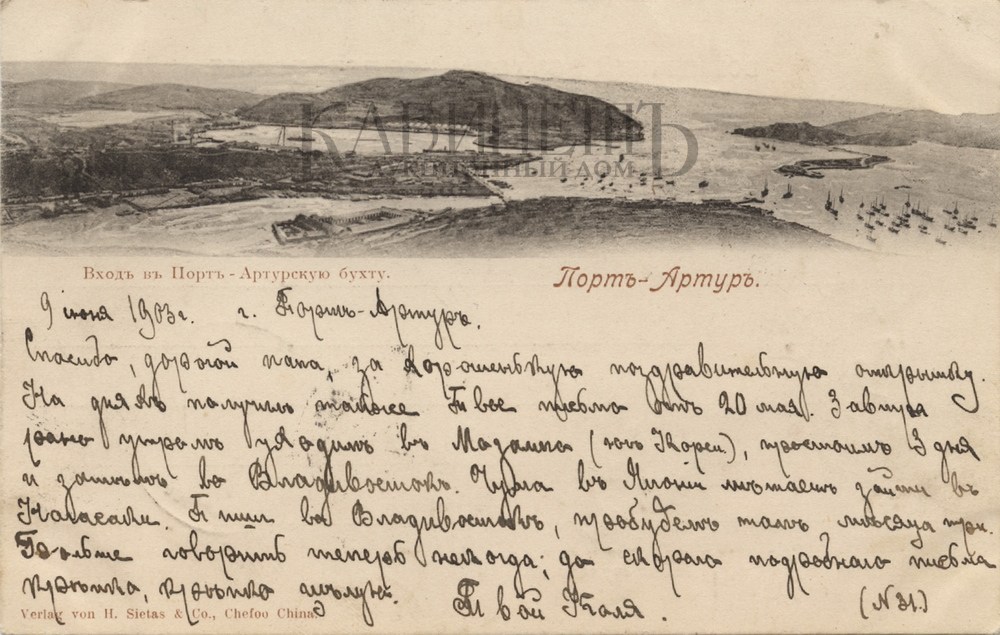 КАБИНЕТЪ
АУКЦИОННЫЙ ДОМ
Входъ въ Портъ-Артурскую бухту.
Портъ-Артуръ.
9 іюня 1903 г. г. Портъ-Артуръ.
Спасибо, дорогой папа, за хорошенькую поздравительную открытку.
На дняхъ получилъ также Твое письмо отъ 20 мая.
рано утромъ уходимъ въ Мозампо (югъ Кореи), простоимъ 3 дня
и затѣмъ во Владивостокъ. Чума въ Японіи мѣшаетъ зайти въ
Нагасаки. Пиши во Владивостокъ, пробудемъ тамъ мѣсяца три.
Больше говорить теперь некогда; до скораго подробнаго письма
крѣпко, крѣпко цѣлую.
Твой Коля. (N 31.)
Verlag von H. Sietas & Co., Chefoo China.